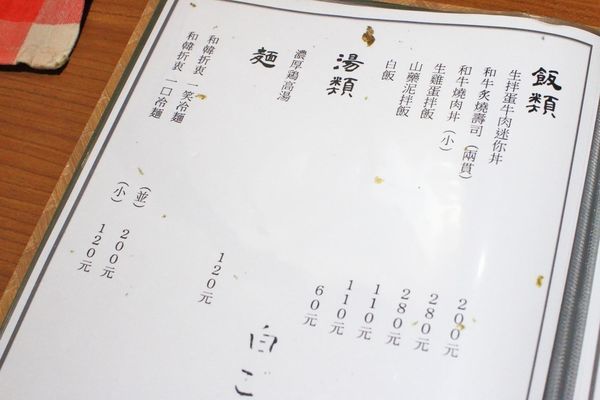 飯類
生拌蛋牛肉迷你丼 200元
和牛炙燒壽司(兩貫) 280元
和牛燒肉丼(小) 280元
生雞蛋拌飯 110元
山藥泥拌飯 110元
白飯 60元
湯類
濃厚鶏高湯 120元
麵
和韓折衷 一笑冷麵 (並) 200元
和韓折衷 一口冷麵 (小) 120元